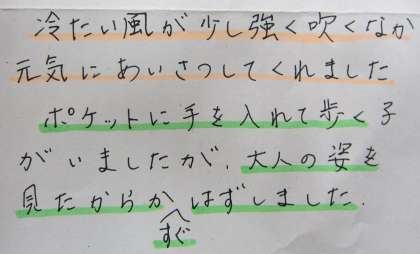 冷たい風が少し強く吹くなか
元気にあいさつしてくれました
ポケットに手を入れて歩く子
がいましたが、大人の姿を
見たからか はずしました.
すぐ